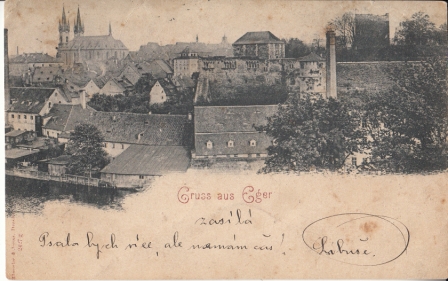 Gruss aus Eger
zasílá
Psala bych více, ale nemam čas!
Libuše.